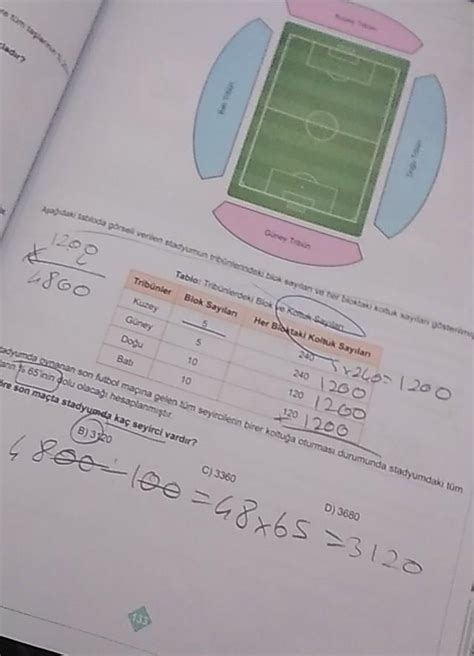 re tüm taşlarının %
ladır?
Kuzey Tribün
Batı Tribün
Doğu Tribün
Güney Tribün
Aşağıdaki tabloda görseli verilen stadyumun tribünlerindeki blok sayıları ve her bloktaki koltuk sayıları gösterilmiş
1200
x 4
4800
Tablo: Tribünlerdeki Blok ve Koltuk Sayıları
Tribünler Blok Sayıları Her Bloktaki Koltuk Sayıları
Kuzey 5 240 5x240=1200
Güney 5 240 1200
Doğu 10 120 1200
Batı 10 120 1200
tadyumda oynanan son futbol maçına gelen tüm seyircilerin birer koltuğa oturması durumunda stadyumdaki tüm
ların % 65'inin dolu olacağı hesaplanmıştır.
öre son maçta stadyumda kaç seyirci vardır?
B) 3120 C) 3360 D) 3680
4800÷100=48x65=3120
133